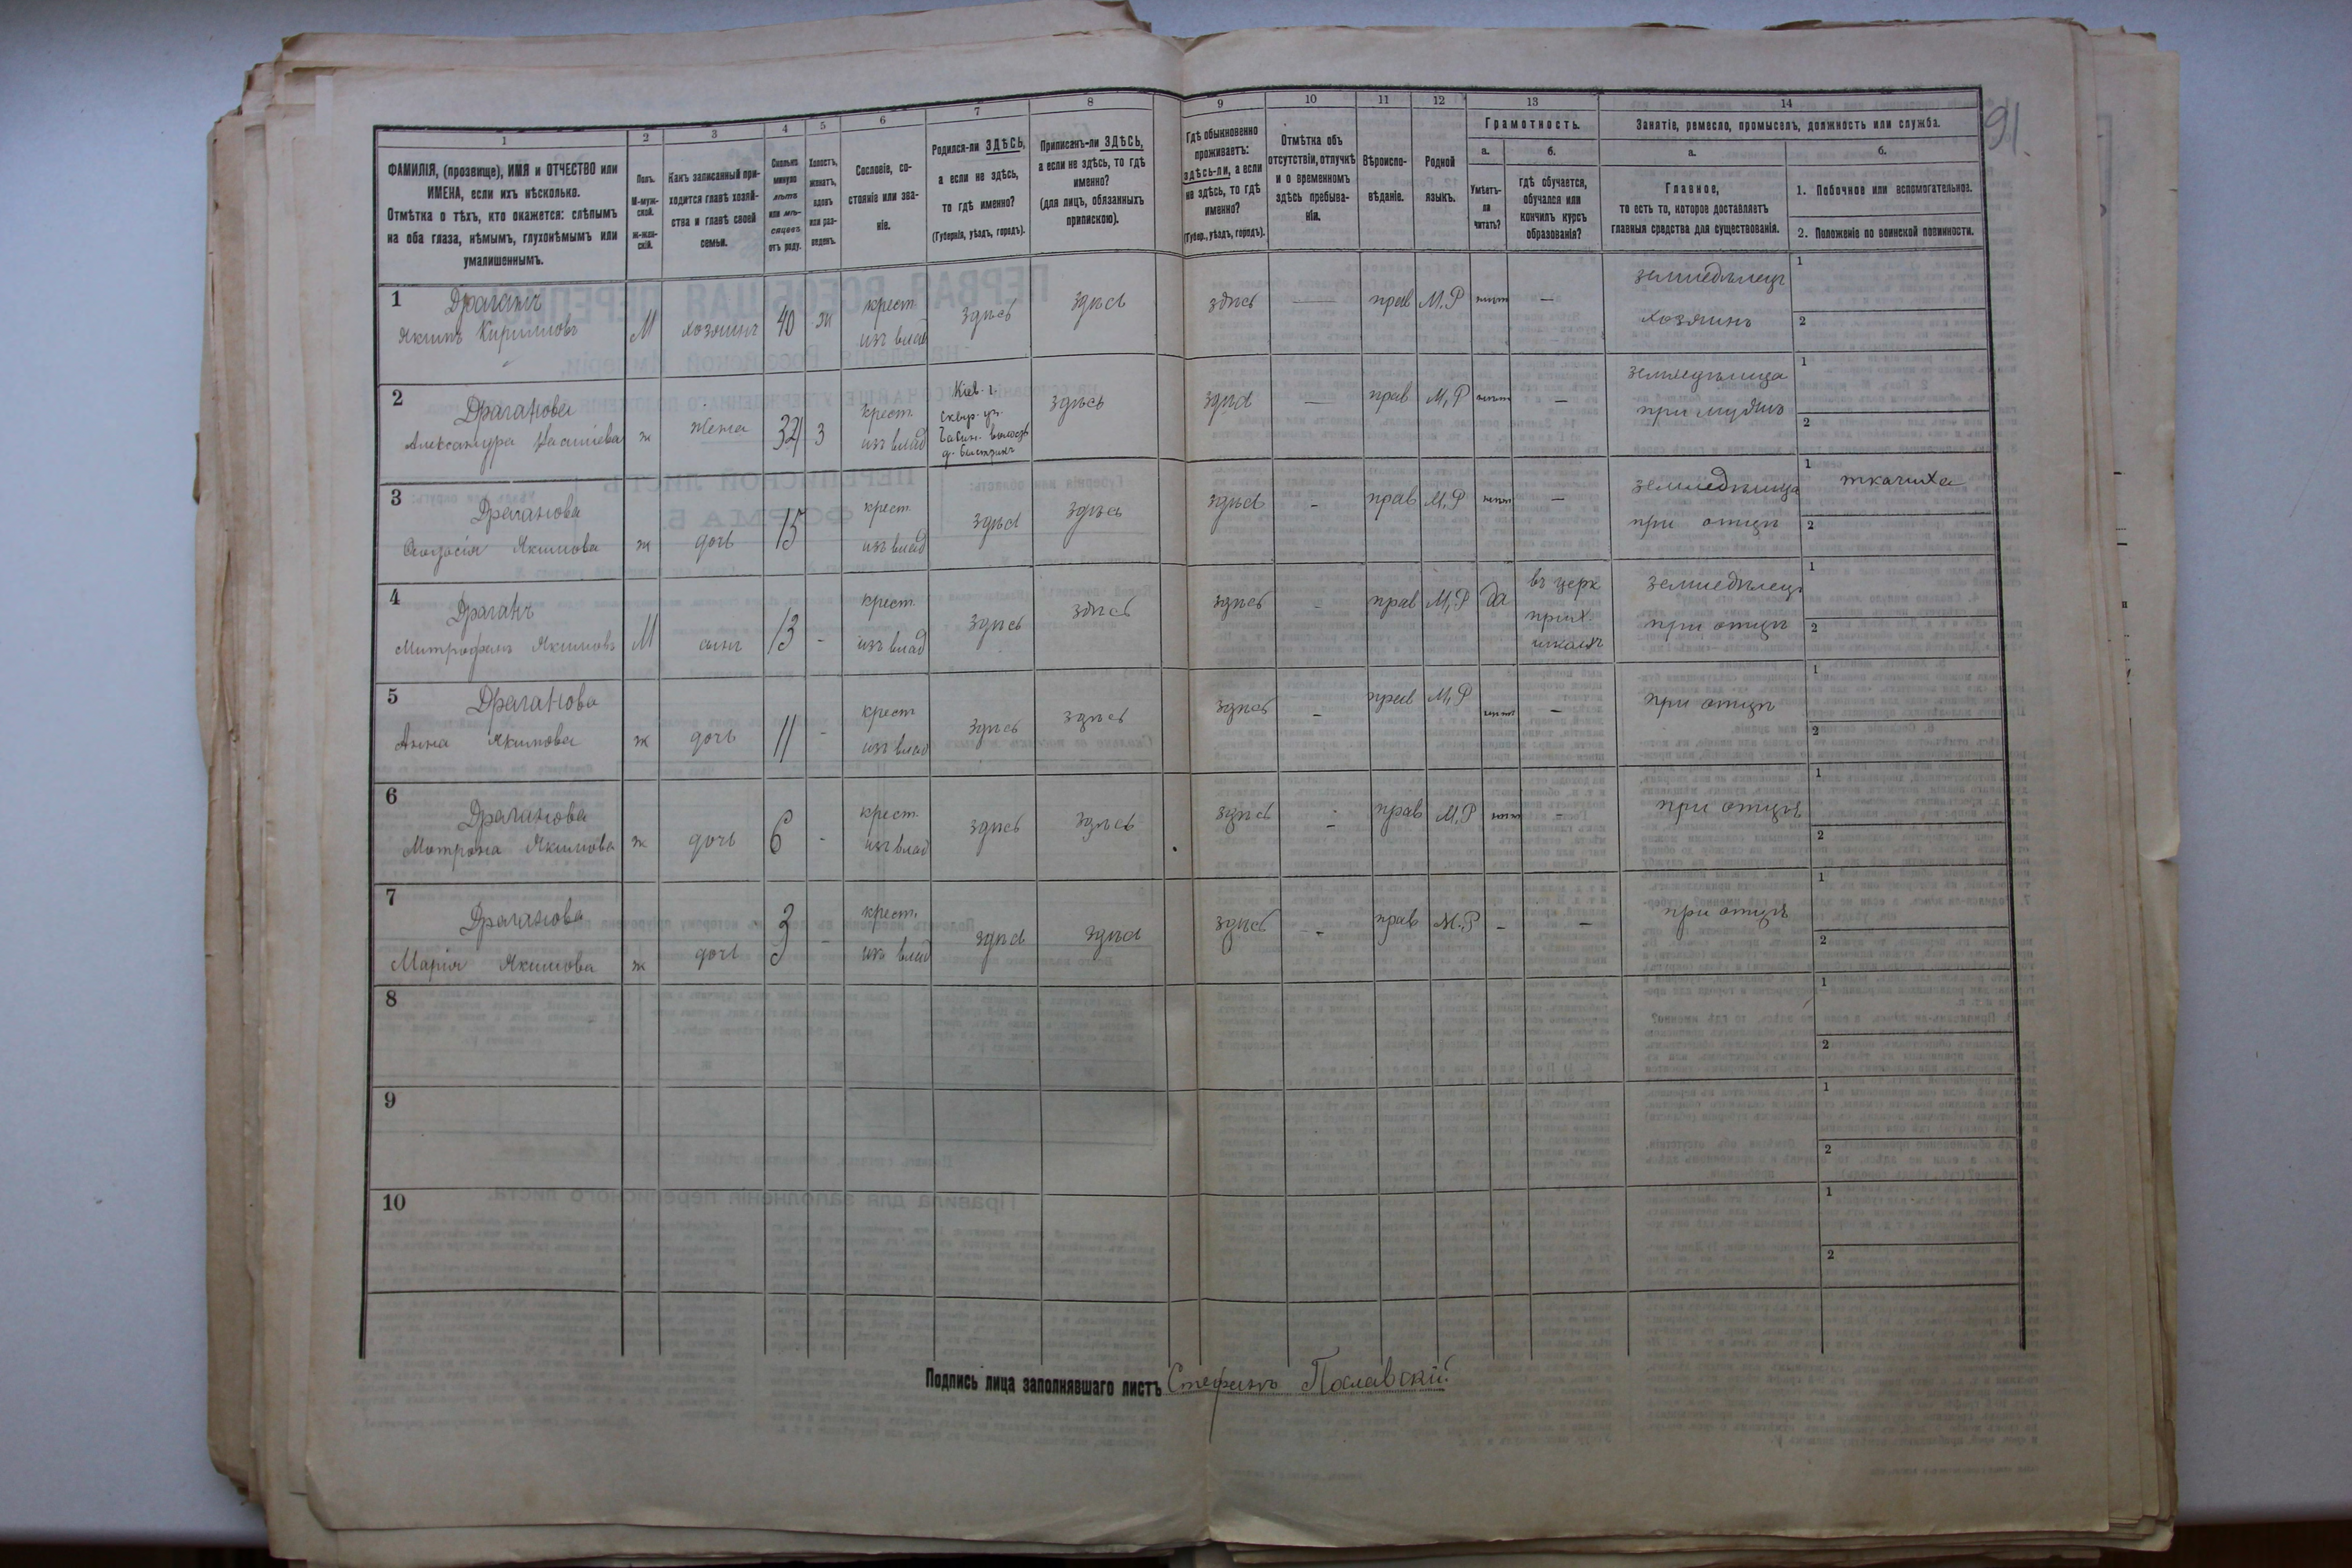 91.
1 2 3 4 5 6 7 8 9 10 11 12 13 14
ФАМИЛІЯ, (прозвище), ИМЯ и ОТЧЕСТВО или
ИМЕНА, если ихъ нѣсколько.
Отмѣтка о тѣхъ, кто окажется: слѣпымъ
на оба глаза, нѣмымъ, глухонѣмымъ или
умалишеннымъ.
Полъ.
М-муж-
ской.
Ж-жен-
скій.
Какъ записанный при-
ходится главѣ хозяй-
ства и главѣ своей
семьи.
Сколько
минуло
лѣтъ
или мѣ-
сяцевъ
отъ роду.
Холостъ,
женатъ,
вдовъ
или раз-
веденъ.
Сословіе, со-
стояніе или зва-
ніе.
Родился-ли ЗДѢСЬ,
а если не здѣсь,
то гдѣ именно?
(Губернія, уѣздъ, городъ).
Приписанъ-ли ЗДѢСЬ,
а если не здѣсь, то гдѣ
именно?
(для лицъ, обязанныхъ
припискою).
Гдѣ обыкновенно
проживаетъ:
здѣсь-ли, а если
не здѣсь, то гдѣ
именно?
(Губер., уѣздъ, городъ).
Отмѣтка объ
отсутствіи, отлучкѣ
и о временномъ
здѣсь пребыва-
ніи.
Вѣроиспо-
вѣданіе.
Родной
языкъ.
Грамотность.
а.
Умѣетъ-
ли
читать?
б.
гдѣ обучается,
обучался или
кончилъ курсъ
образованія?
Занятіе, ремесло, промыселъ, должность или служба.
а.
Главное,
то есть то, которое доставляетъ
главныя средства для существованія.
б.
1. Побочное или вспомогательное.
2. Положеніе по воинской повинности.
1 Драганъ
Якимъ Кириловъ М хозяинъ 40 ж крест
изъ влад здѣсь здѣсь здѣсь — прав М.Р нѣтъ — земледѣлецъ
хозяинъ 1
2
2 Драганова
Александра ж жена 32 з крест.
изъ влад Кіев. г.
Сквир. у.
здѣсь здѣсь — прав М.Р нѣтъ — земледѣлица
при мужѣ 1
2
3 Драганова
Феодосія Якимова ж дочь 15 крест
изъ влад здѣсь здѣсь здѣсь - прав М.Р нѣтъ — земледѣлица
при отцѣ 1 ткачиха
2
4 Драганъ
Митрофанъ Якимовъ М сынъ 13 - крест.
изъ влад здѣсь здѣсь здѣсь - прав М.Р да въ церк
прих.
школѣ земледѣлецъ
при отцѣ 1
2
5 Драганова
Анна Якимова ж дочь 11 - крест
изъ влад здѣсь здѣсь здѣсь - прав М.Р нѣтъ — при отцѣ 1
2
6 Драганова
Мотрона Якимова ж дочь 6 - крест.
изъ влад здѣсь здѣсь здѣсь - прав М.Р нѣтъ - при отцѣ 1
2
7 Драганова
Марія Якимова ж дочь 3 - крест.
изъ влад здѣсь здѣсь здѣсь - прав М.Р - - при отцѣ 1
2
8 1
2
9 1
2
10 1
2
Подпись лица заполнявшаго листъ Стефанъ Пославскій